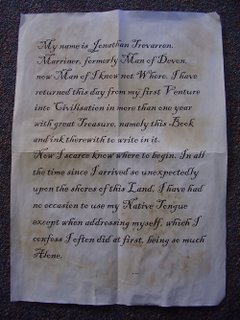 My name is Jonathan Trevarren,
Marriner, formerly Man of Devon,
now Man of I know not Where. I have
returned this day from my first Venture
into Civilisation in more than one year
with great Treasure, namely this Book
and ink therewith to write in it.
Now I scarce know where to begin. In all
the time since I arrived so unexpectedly
upon the shores of this Land, I have had
no occasion to use my Native Tongue
except when addressing myself, which I
confess I often did at first, being so much
Alone.